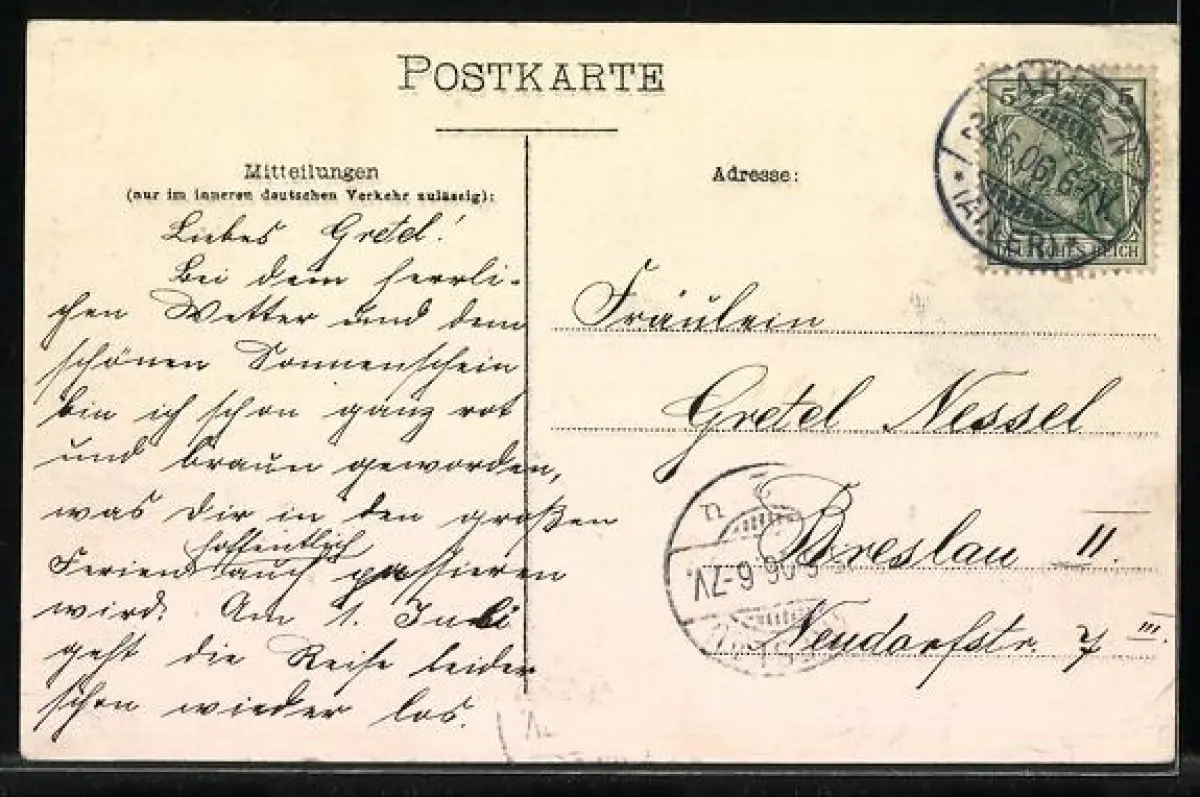 POSTKARTE
Mitteilungen
(nur im inneren deutschen Verkehr zulässig):
Adresse:
5 5
DEUTSCHES REICH
AHLDEN
24.6.06. 6-7V.
* (ALLER) *
Liebes Gretel!
Bei dem herrli-
chen Wetter und dem
schönen Sonnenschein
bin ich schon ganz rot
und braun geworden,
was Dir in den großen
hoffentlich
Ferien auch passieren
wird. Am 1. Juli
geht die Reise leider
schon wieder los.
Fräulein
Gretel Nessel
Breslau II.
Neudorfstr. 7 III.
6-7V.